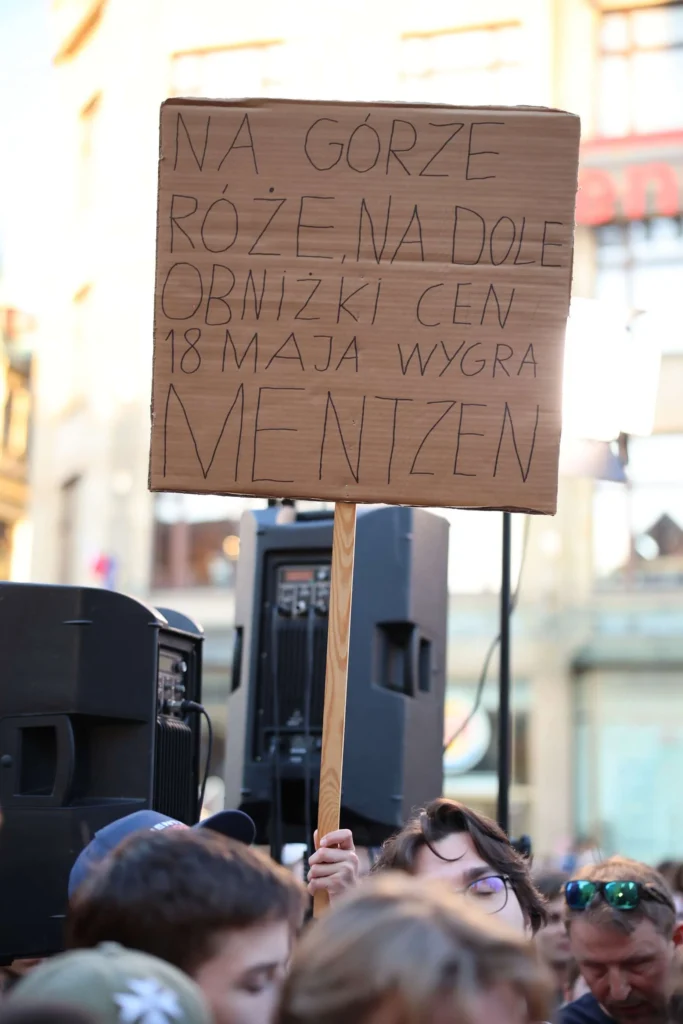 NA GÓRZE
RÓŻE, NA DOLE
OBNIŻKI CEN
18 MAJA WYGRA
MENTZEN
en